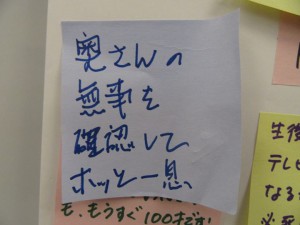 奥さんの
無事を
確認して
ホッと一息
も、もうすぐ100才です!
生後
テレビ
なる
必死